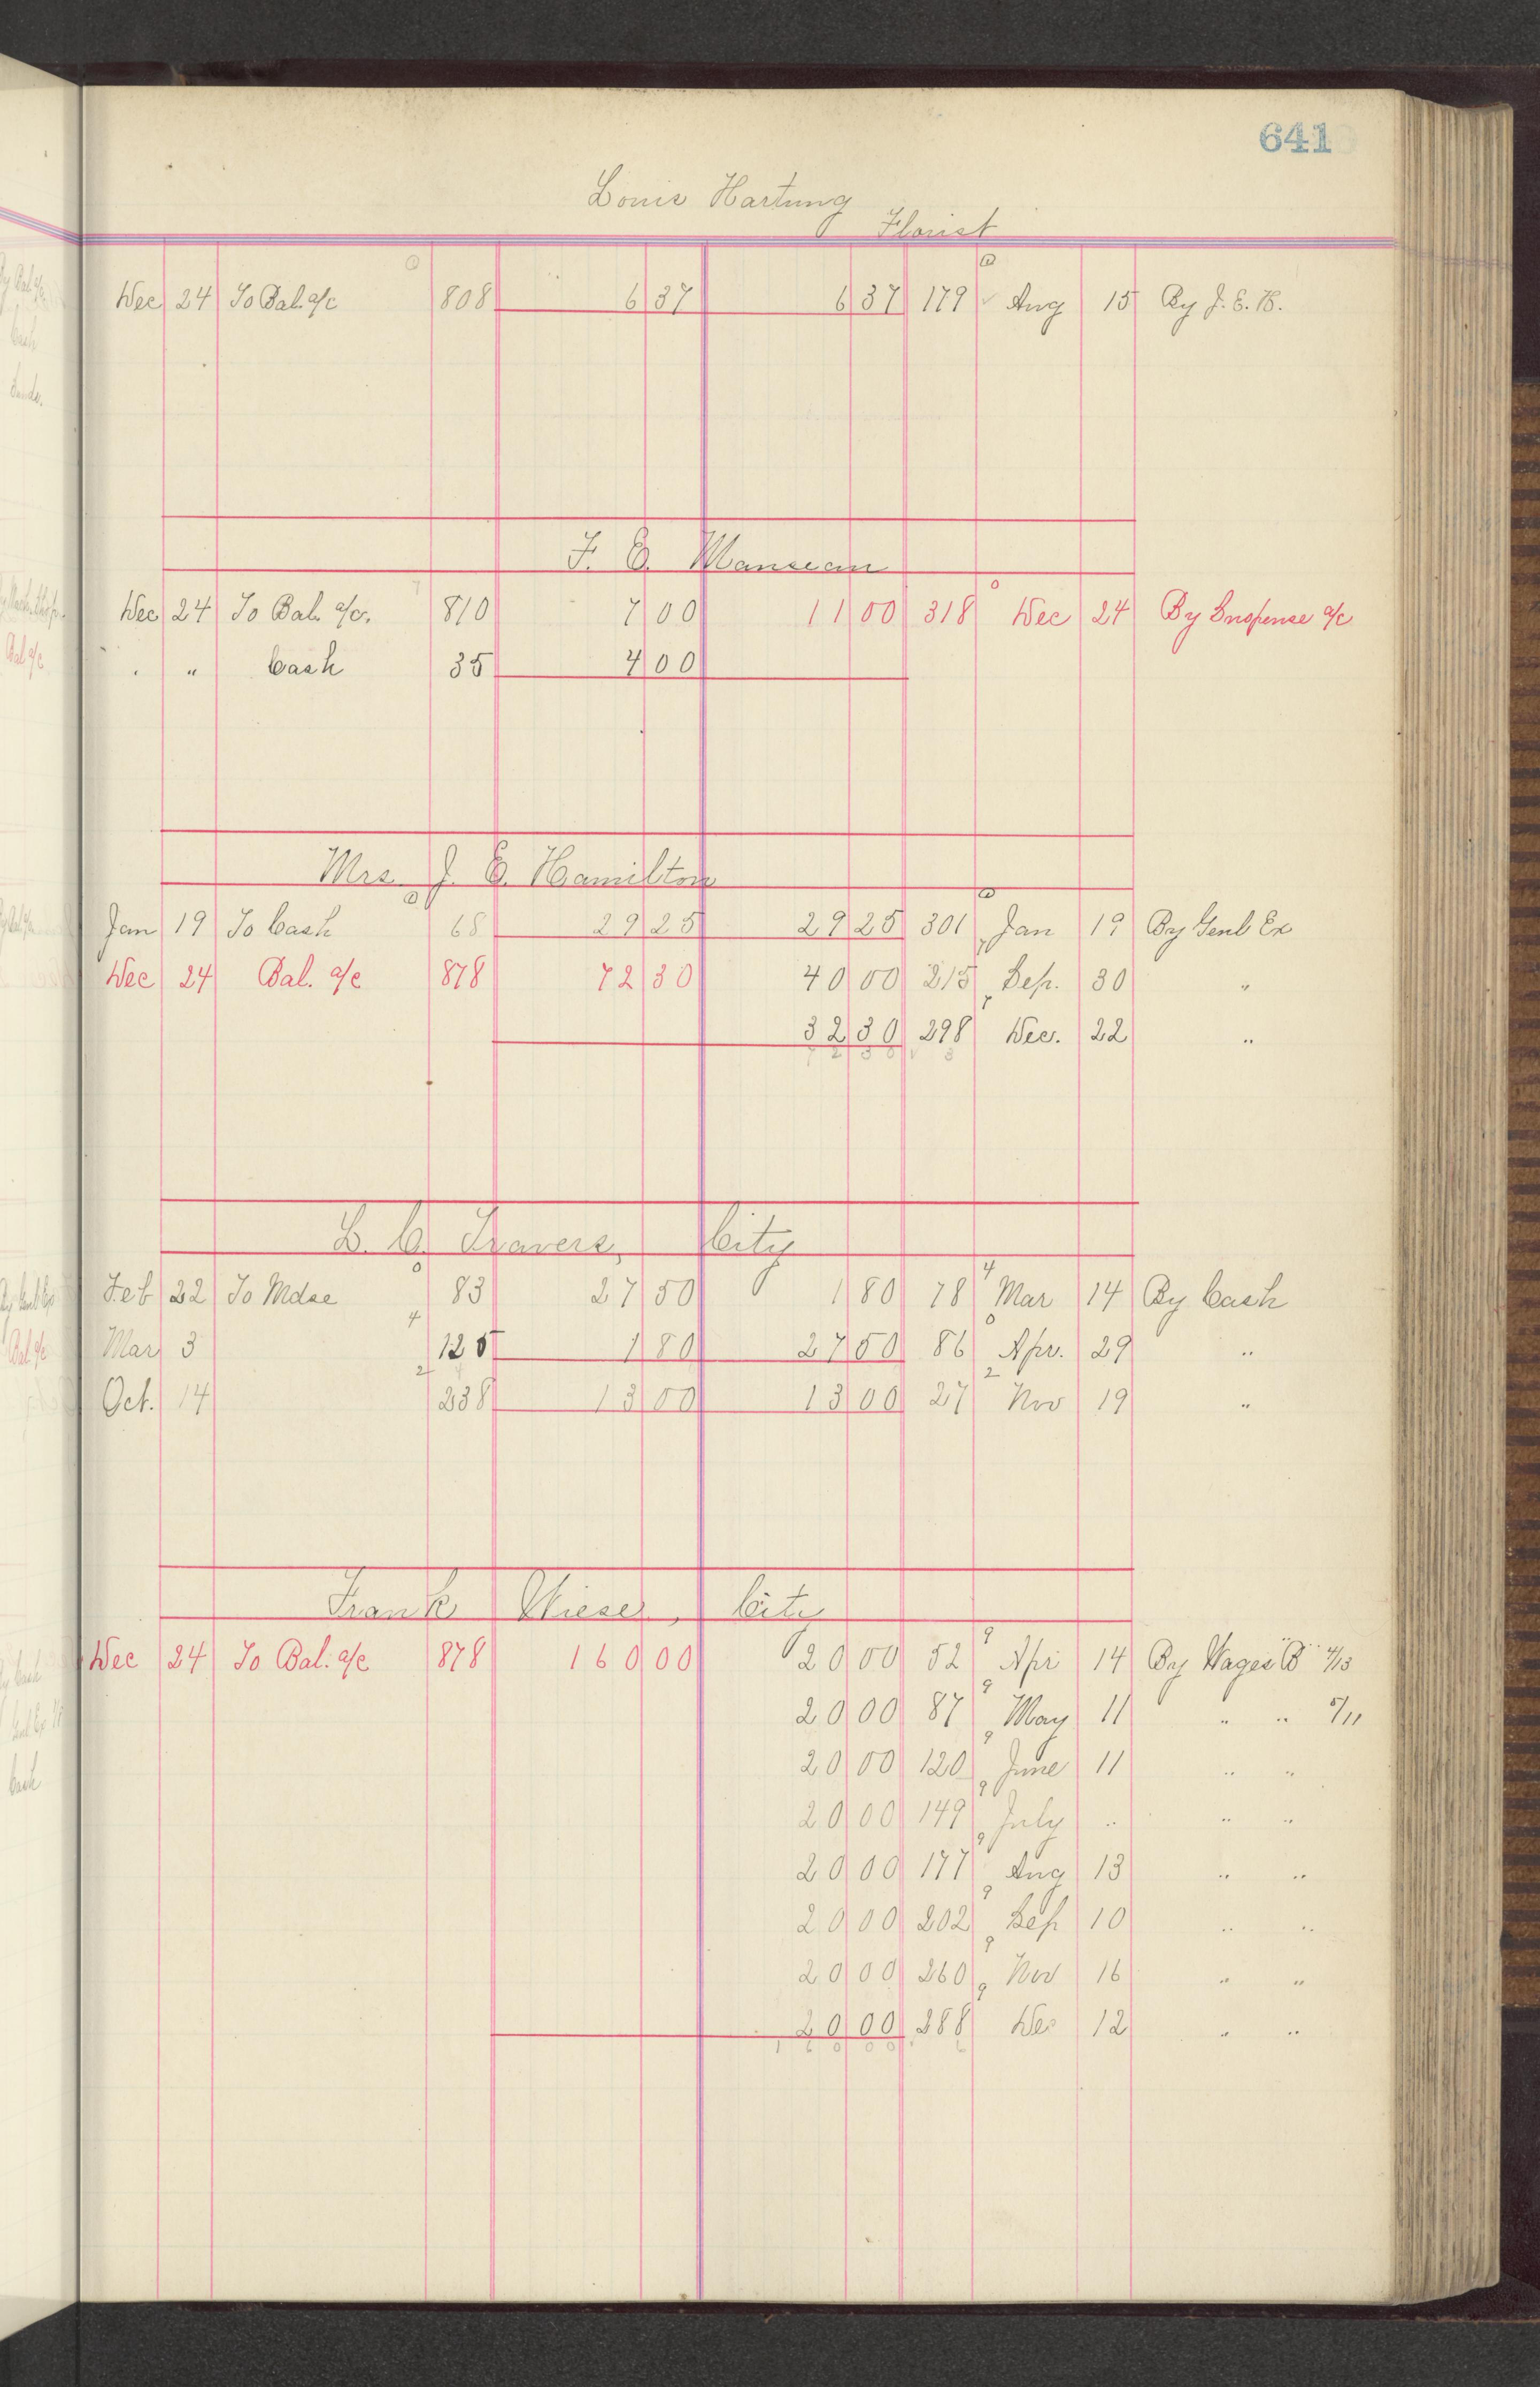 641
Louis Hartung
Florist
Dec 24 To Bal. a/c 808 6 37 6 37 179 Aug 15 By J. E. H.
F. E. Manseau
Dec 24 To Bal. a/c. 810 7 00 11 00 318 Dec 24 By Suspense a/c
" " Cash 35 4 00
Mrs. J. E. Hamilton
Jan 19 To Cash 68 29 25 29 25 301 Jan 19 By Genl Ex
Dec 24 Bal. a/c 878 72 30 40 00 215 Sep. 30 "
32 30 298 Dec. 22 "
7 2 3 0
L. C. Travers, City
Feb 22 To Mdse 83 27 50 1 80 78 Mar 14 By Cash
Mar 3 125 1 80 27 50 86 Apr. 29 "
Oct. 14 238 13 00 13 00 27 Nov 19 "
Frank Wieser, City
Dec 24 To Bal. a/c 878 160 00 20 00 52 Apr 14 By Wages "B" 4/13
20 00 87 May 11 " " 5/11
20 00 120 June 11 " "
20 00 149 July " " "
20 00 177 Aug 13 " "
20 00 202 Sep 10 " "
20 00 260 Nov 16 " "
20 00 288 Dec 12 " "
1 6 0 0 0